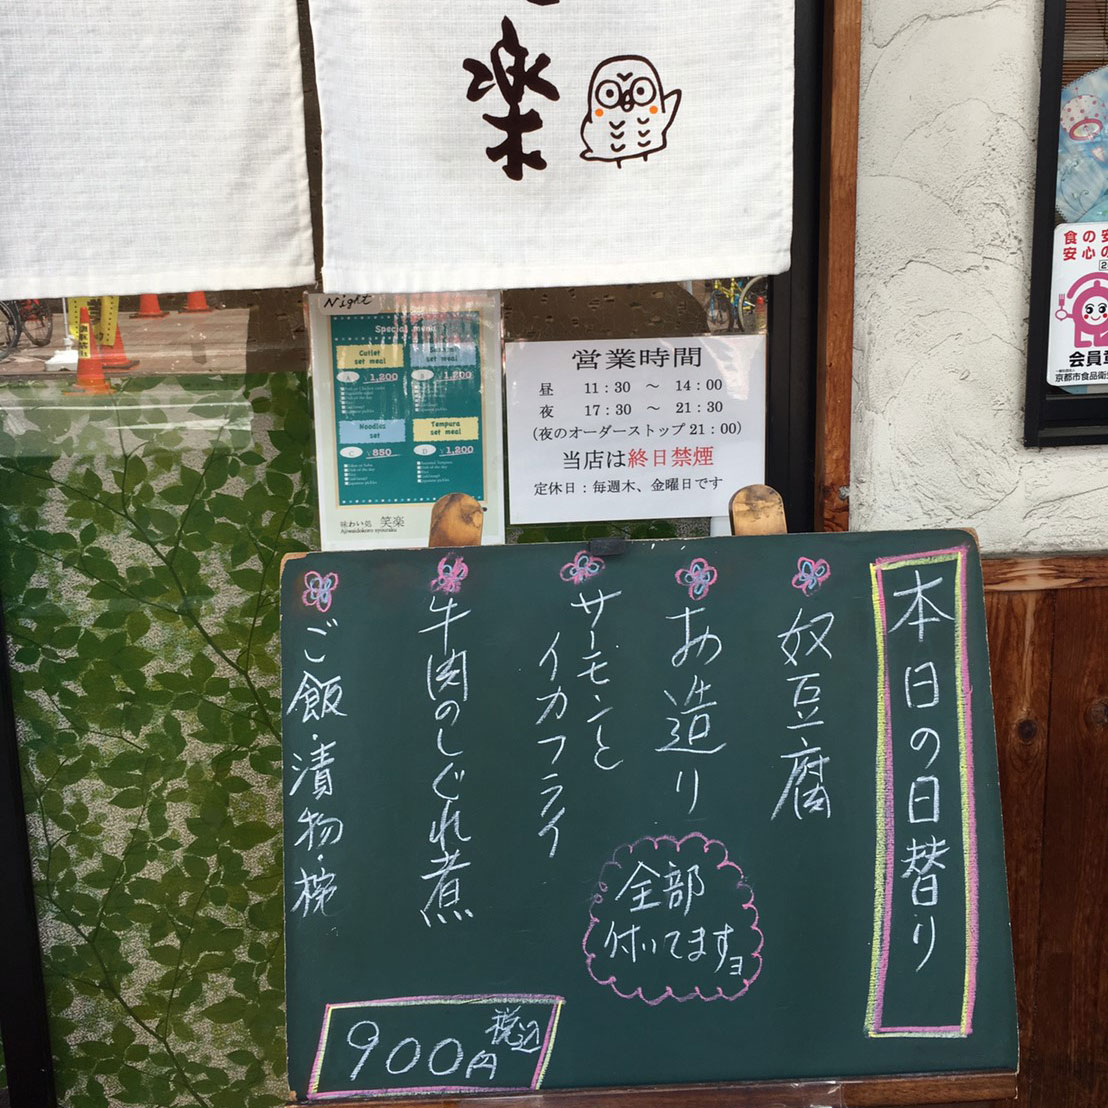 楽
Night
Special menu
Cutlet
set meal
A ¥1,200
B ¥1,200
Noodles
set
C ¥850
Tempura
set meal
D ¥1,200
味わい処 笑楽
営業時間
昼 11:30 ～ 14:00
夜 17:30 ～ 21:30
(夜のオーダーストップ21:00)
当店は終日禁煙
定休日：毎週木、金曜日です
食の安
安心の
会員
京都市食品衛
本日の日替り
奴豆腐
お造り
サーモンと
イカフライ
牛肉のしぐれ煮
ご飯・漬物・椀
全部
付いてますョ
900円
税込